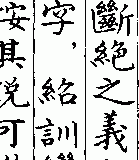 斷絕之義
字，紹訓
安其說可